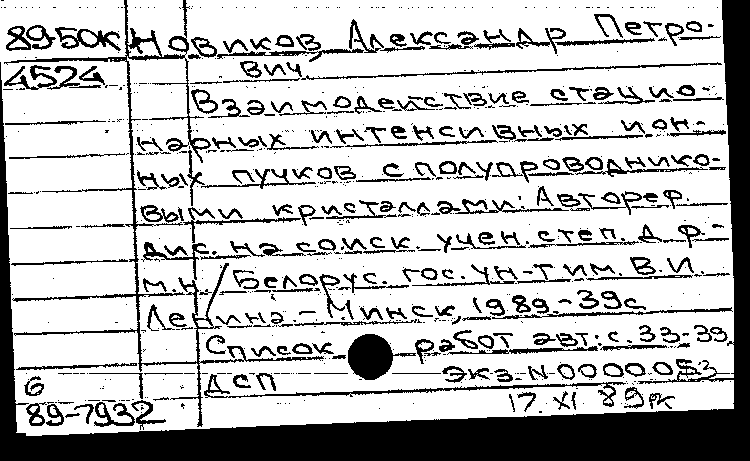 89-50К Новиков, Александр Петро-
4524 вич.
Взаимодействие стацио-
нарных интенсивных ион-
ных пучков с полупроводнико-
выми кристаллами: Автореф.
дис. на соиск. учен. степ. д. ф.-
м.н. / Белорус. гос. ун-т им. В.И.
Ленина. - Минск, 1989. - 39 с
Список работ авт.: с. 33-39.
6 ДСП экз. N 0000053
89-7932 17. XI. 89